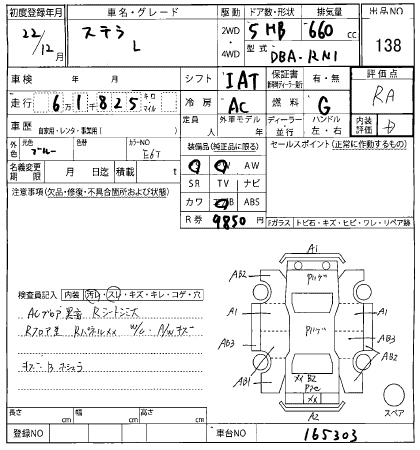 初度登録年月 車名・グレード 駆動 ドア数・形状 排気量 出品NO
22/12月 ステラ L 2WD・4WD 5 HB 660 cc 138
型式 DBA-RN1
車検 年 月 シフト IAT 保証書 有・無 評価点
走行 6万1千825 キロ マイル 冷房 AC 燃料 G RA
車歴 自家用・レンタ・事業用( ) 定員 人 外車モデル 年 ディーラー・並行 ハンドル 左・右 内装評価 D
外色 元色 ブルー 色替 カラーNO E6T 装備品(純正品に限る) セールスポイント(正常に作動するもの)
名義変更期限 月 日迄 積載 t AW
注意事項(欠品・修復・不具合箇所および状態) SR TV ナビ
カワ ABS
R券 9850円 Fガラス トビ石・キズ・ヒビ・ワレ・リペア跡
検査員記入 内装 汚レ・スレ・キズ・キレ・コゲ・穴
ACブロア異音 Rシートシミス
Rフロア
A1
AB2 AB2
A1 A1
AB3 AB3
AB2
AB1
A2
スペア
長さ cm 幅 cm 高さ cm
登録NO 車台NO 165303